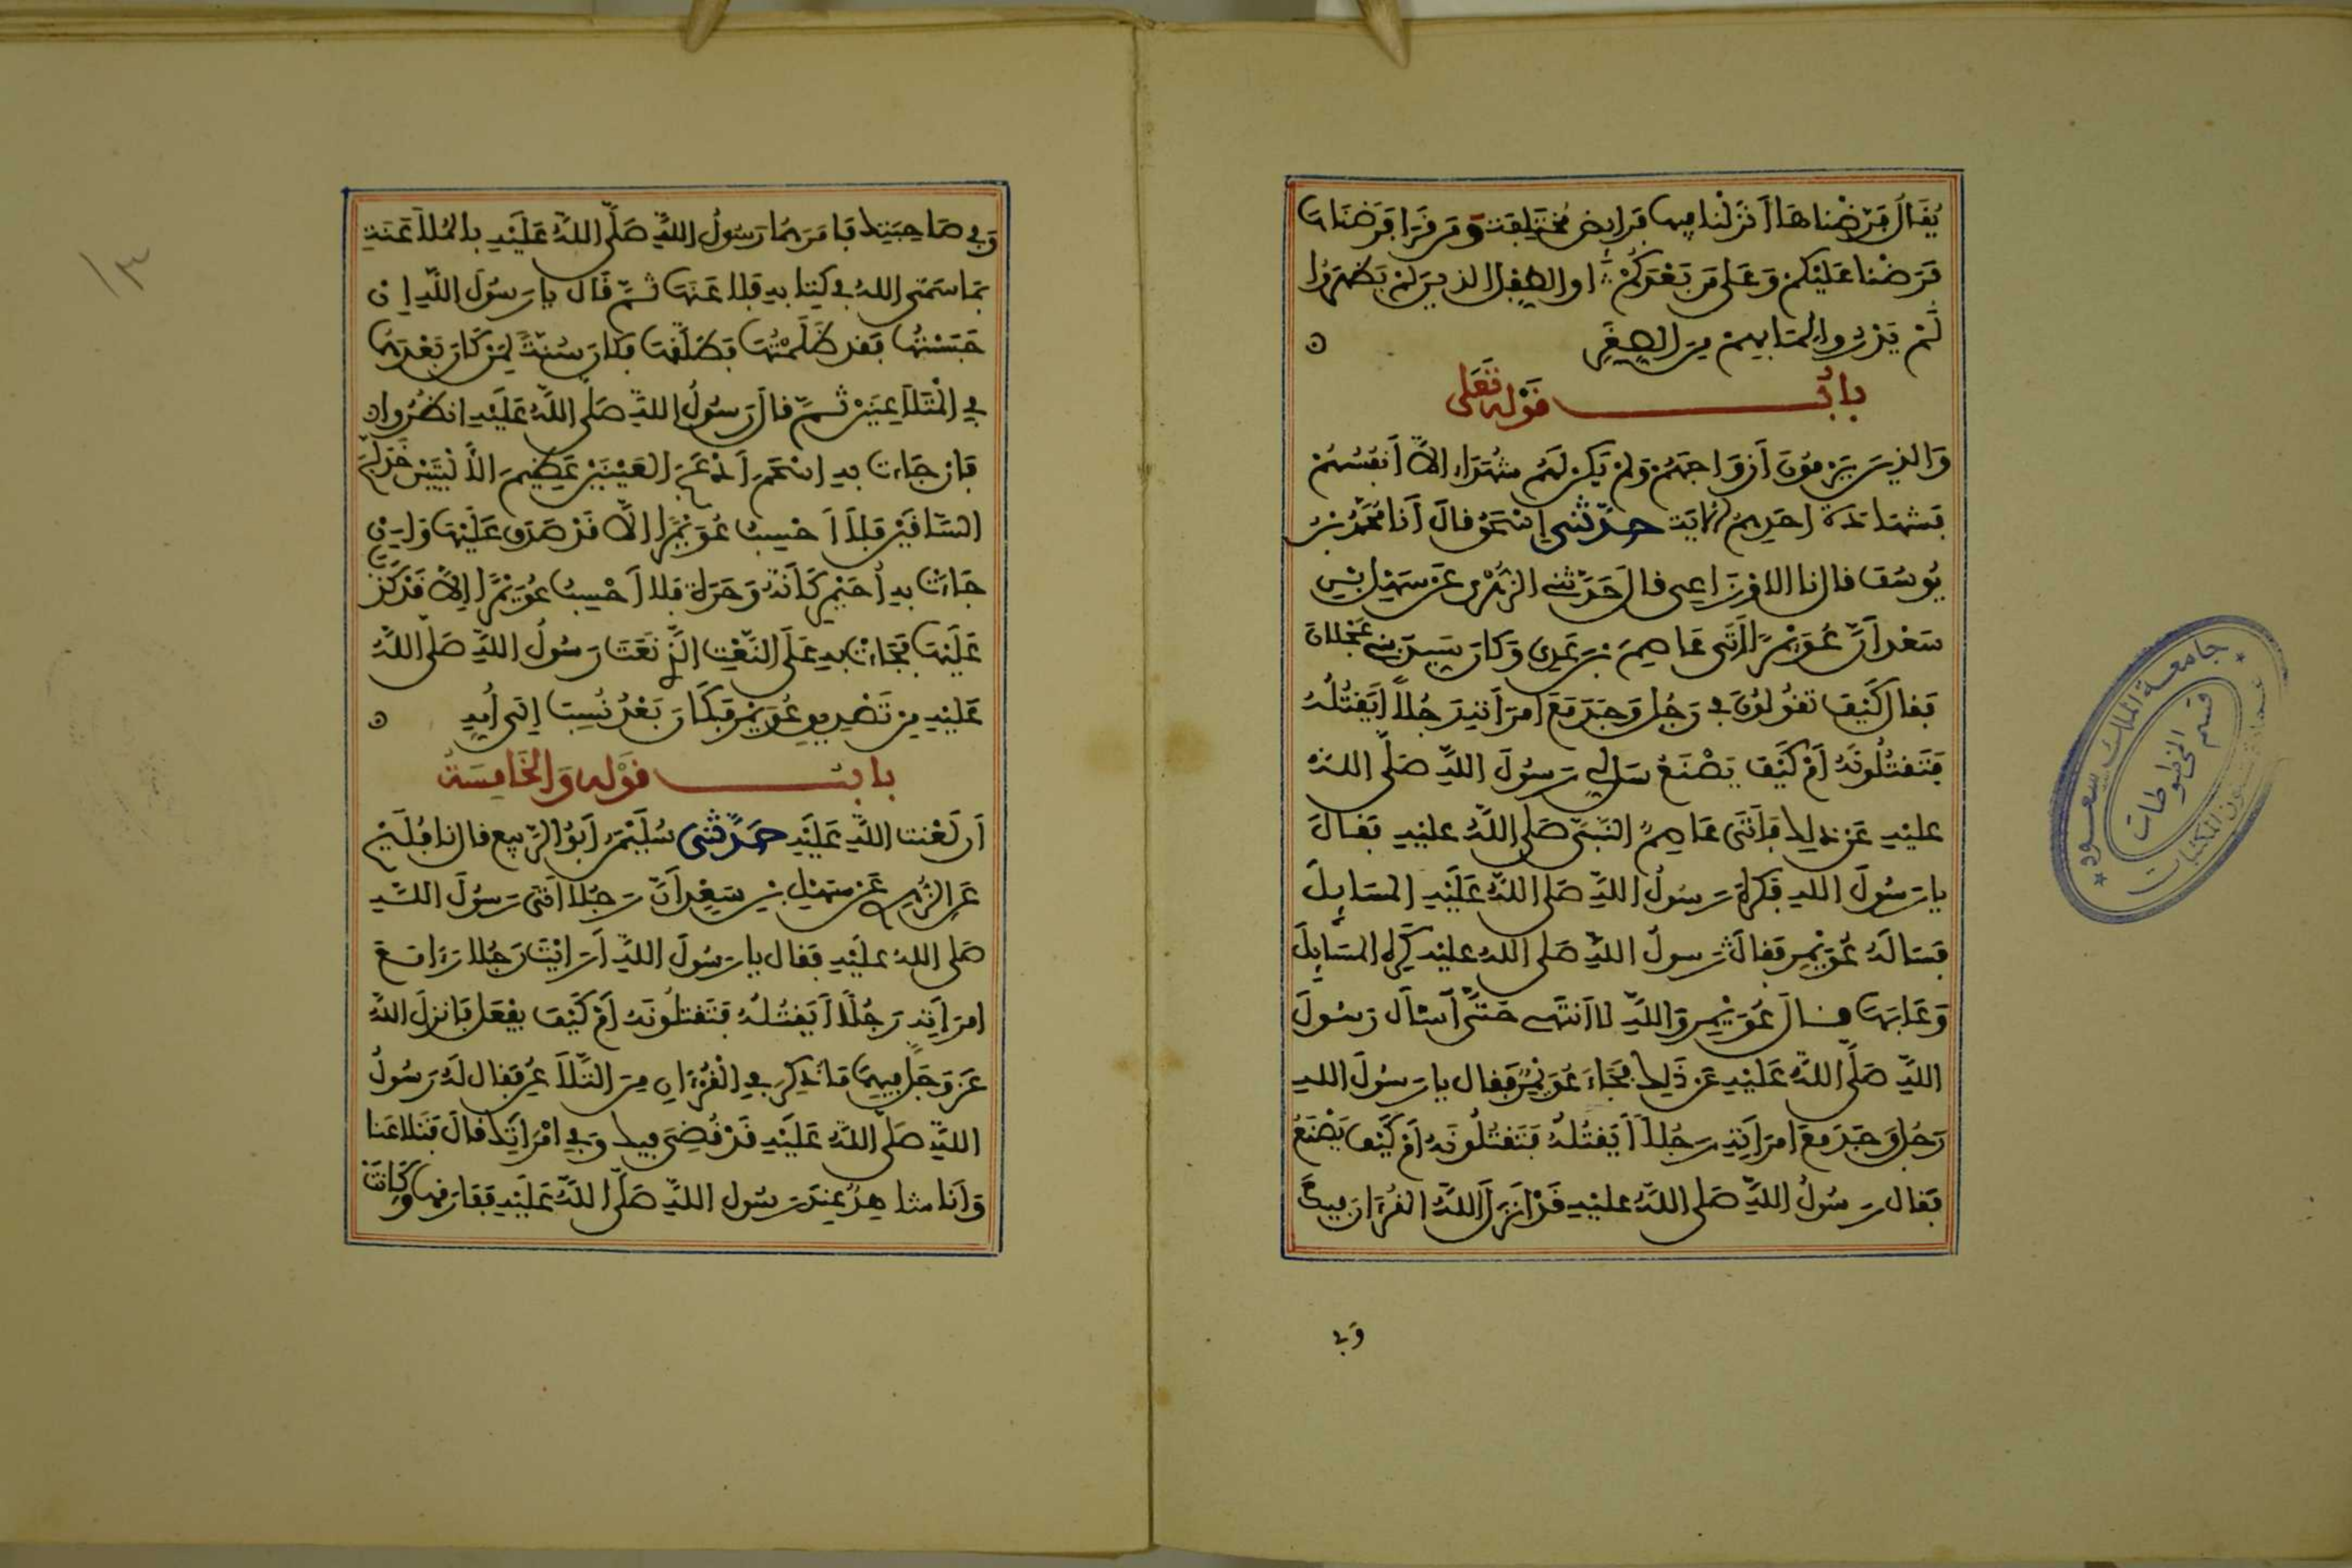 يُقَالُ فَرَّضْنَاهَا أَنْزَلْنَا فِيهَا فَرَائِضَ مُخْتَلِفَةً وَمَن قَرَأَ فَرَضْنَاهَا
فَرَضْنَا عَلَيْكُمْ وَعَلَى مَن بَعْدَكُمْ أو الطِّفْلِ الذِينَ لَمْ يَظْهَرُوا
لَمْ يَدْرُوا لِمَا بِهِمْ مِنَ الصِّغَرِ
بَابُ قَوْلِهِ تَعَلَى
وَالذِينَ يَرْمُونَ أَزْوَاجَهُمْ وَلَمْ يَكُن لَهُمْ شُهَدَاءُ إِلاَّ أَنفُسُهُمْ
فَشَهَادَةُ أَحَدِهِمُ الآيَةَ حدّثني إِسْحَقُ قَالَ أَنَا مُحَمَّدُ بْنُ
يُوسُفَ قال نا الأوْزَاعِي قال حَدَّثَنِي الزُّهْرِي عَن سَهْلِ بْنِ
سَعْدٍ أَنَّ عُوَيْمِرًا أَتَى عَاصِمَ بْنَ عَدِيٍ وَكَانَ سَيِّدَ بَنِي عَجْلَانَ
فَقَالَ كَيْفَ تَقُولُونَ فِي رَجُلٍ وَجَدَ مَعَ امْرَأَتِهِ رَجُلاً أَيَقْتُلُهُ
فَتَقْتُلُونَهُ أَمْ كَيْفَ يَصْنَعُ سَلْ لِي رَسُولَ اللَّهِ صَلَّى اللهُ
عَلَيْهِ عَن ذلِكَ فَأَتَى عَاصِمٌ النَّبِيَّ صَلى اللَّهُ عليْهِ فَقَالَ
يا رَسُولَ اللهِ فَكَرِهَ رَسُولُ اللَّهِ صَلى اللهُ عَلَيْهِ المَسَايِلَ
فَسَأَلَهُ عُوَيْمِرٌ فَقَالَ رَسولُ اللَّهِ صَلى اللهُ عليْهِ كَرِهَ المَسَايِلَ
وَعَابَهَا قال عُوَيْمِرٌ وَاللَّهِ لا أَنْتَهِي حَتَّى أَسْأَلَ رَسُولَ
اللَّهِ صَلَّى اللهُ عَلَيْهِ عَن ذَلِكَ فَجَاءَ عُوَيْمِرٌ فَقال يا رَسُولَ اللهِ
رَجُلٌ وَجَدَ مَعَ امْرَأَتِهِ رَجُلاً أَيَقْتُلُهُ فَتَقْتُلُونَهُ أَمْ كَيْفَ يَصْنَعُ
فَقَال رَسُولُ اللَّهِ صَلى اللَّهُ عليْهِ قَدْ أَنزَلَ اللَّهُ القُرْءَانَ فِيكَ
وَفِي
وَفِي صَاحِبَتِكَ فَأَمَرَهُمَا رَسُولُ اللَّهِ صَلَّى اللهُ عَلَيْهِ بالمُلاَعَنَةِ
بِمَا سَمَّى اللهُ فِي كِتَابِهِ فَلاعَنَهَا ثُمَّ قَالَ يا رَسُولَ اللَّهِ إن
حَبَسْتُهَا فَقَد ظَلَمْتُهَا فَطَلَّقَهَا فَكَانَ سُنَّةً لِمَن كَانَ بَعْدَهُمَا
فِي الْمُتَلاَعِنَيْنِ ثُمَّ قالَ رَسُولُ اللَّهِ صَلَّى اللَّهُ عَلَيْهِ انظُرُوا
فَإِن جَاءَت بِهِ أَسْحَمَ أَدْعَجَ العَيْنَيْنِ عَظِيمَ الأَلْيَتَيْنِ خَدَلَّجَ
السَّاقَيْنِ فَلاَ أَحْسِبُ عُوَيْمِرًا إِلاَّ قَدْ صَدَقَ عَلَيْهَا وَإِن
جَاءَتْ بِهِ أُحَيْمِرَ كَأَنَّهُ وَحَرَةٌ فَلا أَحْسِبُ عُوَيْمِرًا إِلاَّ قَدْ كَذَبَ
عَلَيْهَا فَجَاءَتْ بِهِ عَلَى النَّعْتِ الَّذِي نَعَتَ رَسُولُ اللَّهِ صَلَّى اللَّهُ
عَلَيْهِ مِن تَصْدِيقِ عُوَيْمِرٍ فَكَانَ بَعْدُ يُنْسَبُ إلَى أُمِّهِ
بابُ قَوْلِهِ وَالخَامِسَةُ
أَن لَعْنَتَ اللَّهِ عَلَيْهِ حَدَّثَنِي سُلَيْمَنُ أَبُو الرَّبِيعِ قال نا فُلَيْحٌ
عَنِ الزُّهْرِي عَن سَهْلِ بْنِ سَعْدٍ أَنَّ رَجُلاً أَتَى رَسُولَ اللَّهِ
صَلى اللهُ عليْهِ فَقال يا رَسُولَ اللَّهِ أَرَأَيْتَ رَجُلا رَءَا مَعَ
امْرَأَتِهِ رَجُلًا أَيَقْتُلُهُ فَتَقْتُلُونَهُ أَمْ كَيْفَ يَفْعَلُ فَأَنزَلَ اللهُ
عَزَّ وَجَلَّ فِيهِمَا مَا ذُكِرَ فِي الْقُرْءَانِ مِنَ التَّلاَعُنِ فَقال لَهُ رَسُولُ
اللَّهِ صَلَّى اللَّهُ عَلَيْهِ قَدْ قُضِيَ فِيكَ وَفِي امْرَأَتِكَ قالَ فَتَلاعَنَا
وَأَنا شاهِدٌ عِندَ رَسُولِ اللَّهِ صَلَّى اللَّهُ عَلَيْهِ فَفَارَقَهَا وَكَانَتْ
١٣
جامعة الملك سعود
قسم المخطوطات
عمادة شئون المكتبات